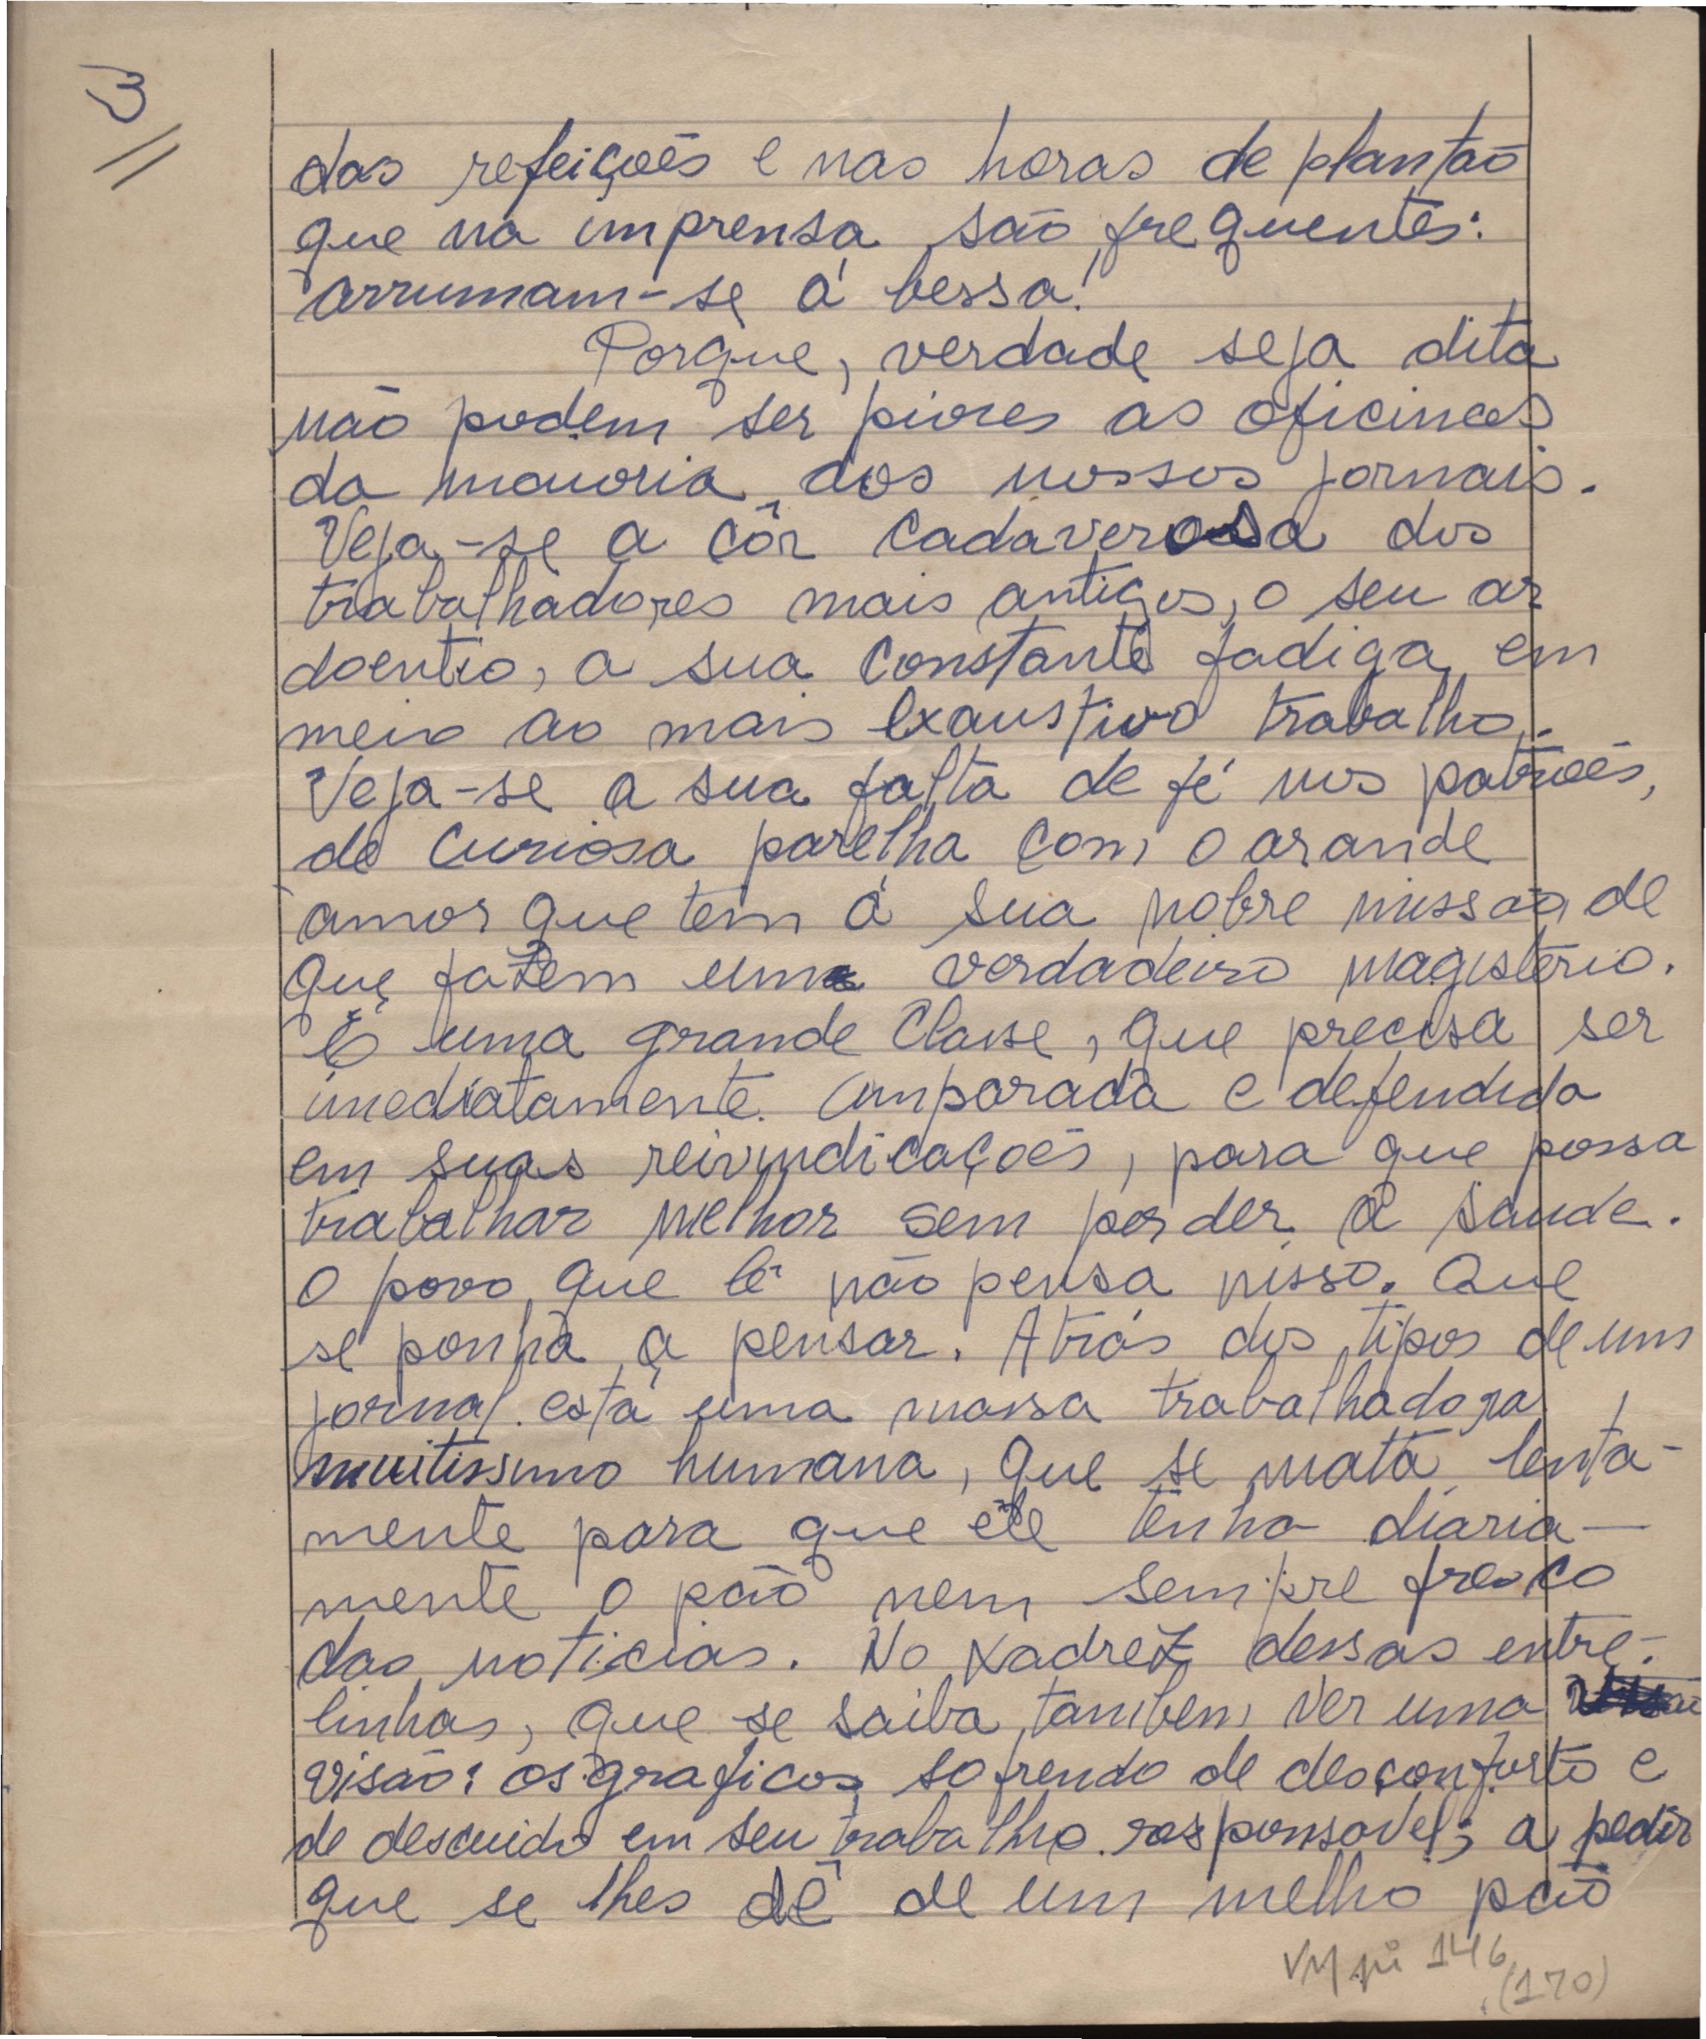 3
das refeições e nas horas de plantão
que na imprensa são frequentes:
arrumam-se á bessa!
Porque, verdade seja dita
não podem ser piores as oficinas
da maioria dos nossos jornais.
Veja-se a côr cadaverosa dos
trabalhadores mais antigos, o seu ar
doentio, a sua constante fadiga em
meio ao mais exaustivo trabalho.
Veja-se a sua falta de fé nos patrões,
de curiosa parelha com o grande
amor que tem á sua nobre missão, de
que fazem um verdadeiro magistério.
É uma grande classe, que precisa ser
imediatamente amparada e defendida
em suas reivindicações, para que possa
trabalhar melhor sem perder a saude.
O povo que lê não pensa nisso. Que
se ponha a pensar. Atrás dos tipos de um
jornal está uma massa trabalhadora,
muitissimo humana, que se mata lenta-
mente para que êle tenha diaria-
mente o pão nem sempre fresco
das noticias. No xadrez dessas entre-
linhas, que se saiba tambem ver uma
visão: os graficos sofrendo de desconforto e
de descuido em seu trabalho responsavel; a pedir
que se lhes dê de um melho pão
VM pi 146
(170)